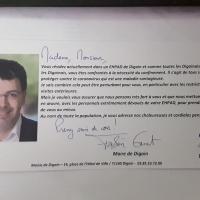 Madame, Monsieur
Vous résidez actuellement dans un EHPAD de Digoin et comme toutes les Digoinaises
les Digoinais, vous êtes confrontés à la nécessité du confinement. Il s'agit de tous
protéger contre le coronavirus qui est une maladie contagieuse.
Je sais combien cela peut être perturbant pour vous, en particulier avec les restrictions
visites extérieures.
Mais je voulais vous assurer que nous pensons très fort à vous et que nous mettons
en œuvre, avec les personnels extrêmement dévoués de votre EHPAD, pour prendre
de vous au mieux.
Au nom de toute la population, je vous adresse nos chaleureuses et cordiales pensées
Prenez soin de vous !
Maire de Digoin
Mairie de Digoin – 14, place de l'Hôtel de Ville / 71160 Digoin – 03.85.53.73.00